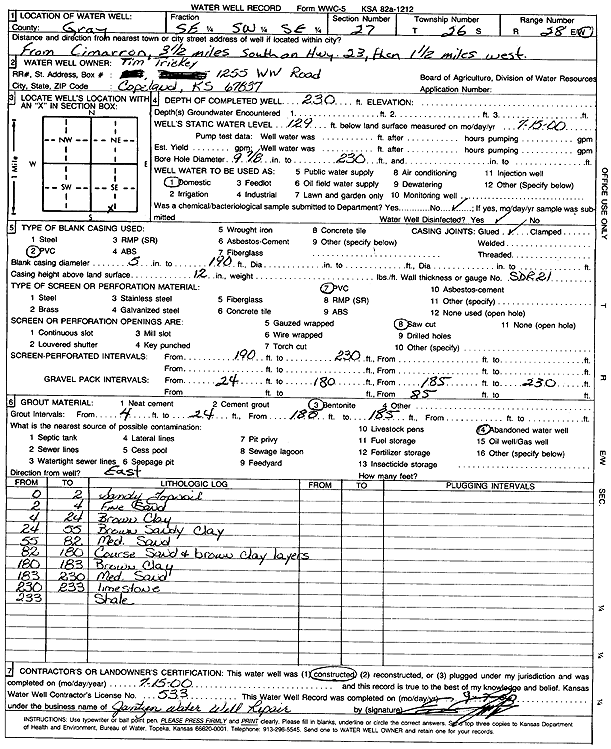 WATER WELL RECORD Form WWC-5 KSA 82a-1212
1 LOCATION OF WATER WELL: Fraction Section Number Township Number Range Number
County: Gray SE ¼ SW ¼ SE ¼ 27 T 26 S R 28 E/W
Distance and direction from nearest town or city street address of well if located within city?
From Cimarron, 3½ miles South on Hwy. 23, then 1½ miles west.
2 WATER WELL OWNER: Tim Trickey
RR#, St. Address, Box # : 1255 WW Road Board of Agriculture, Division of Water Resources
City, State, ZIP Code : Copeland, KS 67837 Application Number:
3 LOCATE WELL'S LOCATION WITH AN "X" IN SECTION BOX:
N
NW NE
W E
SW SE
X
S
1 Mile
4 DEPTH OF COMPLETED WELL 230 ft. ELEVATION:
Depth(s) Groundwater Encountered 1. ft. 2. ft. 3. ft.
WELL'S STATIC WATER LEVEL 129 ft. below land surface measured on mo/day/yr 7-15-00
Pump test data: Well water was ft. after hours pumping gpm
Est. Yield gpm: Well water was ft. after hours pumping gpm
Bore Hole Diameter 9 7/8 in. to 230 ft., and in. to ft.
WELL WATER TO BE USED AS: 5 Public water supply 8 Air conditioning 11 Injection well
1 Domestic 3 Feedlot 6 Oil field water supply 9 Dewatering 12 Other (Specify below)
2 Irrigation 4 Industrial 7 Lawn and garden only 10 Monitoring well
Was a chemical/bacteriological sample submitted to Department? Yes No ✓; If yes, mo/day/yr sample was submitted
Water Well Disinfected? Yes ✓ No
5 TYPE OF BLANK CASING USED: 5 Wrought iron 8 Concrete tile CASING JOINTS: Glued ✓ Clamped
1 Steel 3 RMP (SR) 6 Asbestos-Cement 9 Other (specify below) Welded
2 PVC 4 ABS 7 Fiberglass Threaded
Blank casing diameter 5 in. to 190 ft., Dia in. to ft., Dia in. to ft.
Casing height above land surface 12 in., weight lbs./ft. Wall thickness or gauge No. SDR 21
TYPE OF SCREEN OR PERFORATION MATERIAL: 7 PVC 10 Asbestos-cement
1 Steel 3 Stainless steel 5 Fiberglass 8 RMP (SR) 11 Other (specify)
2 Brass 4 Galvanized steel 6 Concrete tile 9 ABS 12 None used (open hole)
SCREEN OR PERFORATION OPENINGS ARE: 5 Gauzed wrapped 8 Saw cut 11 None (open hole)
1 Continuous slot 3 Mill slot 6 Wire wrapped 9 Drilled holes
2 Louvered shutter 4 Key punched 7 Torch cut 10 Other (specify)
SCREEN-PERFORATED INTERVALS: From 190 ft. to 230 ft., From ft. to ft.
From ft. to ft., From ft. to ft.
GRAVEL PACK INTERVALS: From 24 ft. to 180 ft., From 185 ft. to 230 ft.
From ft. to ft., From 85 ft. to ft.
6 GROUT MATERIAL: 1 Neat cement 2 Cement grout 3 Bentonite 4 Other
Grout Intervals: From 4 ft. to 24 ft., From 180 ft. to 185 ft., From ft. to ft.
What is the nearest source of possible contamination: 10 Livestock pens 14 Abandoned water well
1 Septic tank 4 Lateral lines 7 Pit privy 11 Fuel storage 15 Oil well/Gas well
2 Sewer lines 5 Cess pool 8 Sewage lagoon 12 Fertilizer storage 16 Other (specify below)
3 Watertight sewer lines 6 Seepage pit 9 Feedyard 13 Insecticide storage
Direction from well? East How many feet?
FROM TO LITHOLOGIC LOG FROM TO PLUGGING INTERVALS
0 2 Sandy Topsoil
2 4 Fine Sand
4 24 Brown Clay
24 55 Brown Sandy Clay
55 82 Med. Sand
82 180 Course Sand & brown clay layers
180 183 Brown Clay
183 230 Med. Sand
230 233 limestone
233 Shale
7 CONTRACTOR'S OR LANDOWNER'S CERTIFICATION: This water well was (1) constructed, (2) reconstructed, or (3) plugged under my jurisdiction and was
completed on (mo/day/year) 7-15-00 and this record is true to the best of my knowledge and belief. Kansas
Water Well Contractor's License No. 533 This Water Well Record was completed on (mo/day/yr)
under the business name of Jantzen Water Well Repair by (signature)
INSTRUCTIONS: Use typewriter or ball point pen. PLEASE PRESS FIRMLY and PRINT clearly. Please fill in blanks, underline or circle the correct answers. Send top three copies to Kansas Department
of Health and Environment, Bureau of Water, Topeka, Kansas 66620-0001. Telephone: 913-296-5545. Send one to WATER WELL OWNER and retain one for your records.
OFFICE USE ONLY
T
R
E/W
SEC.
¼
¼
¼